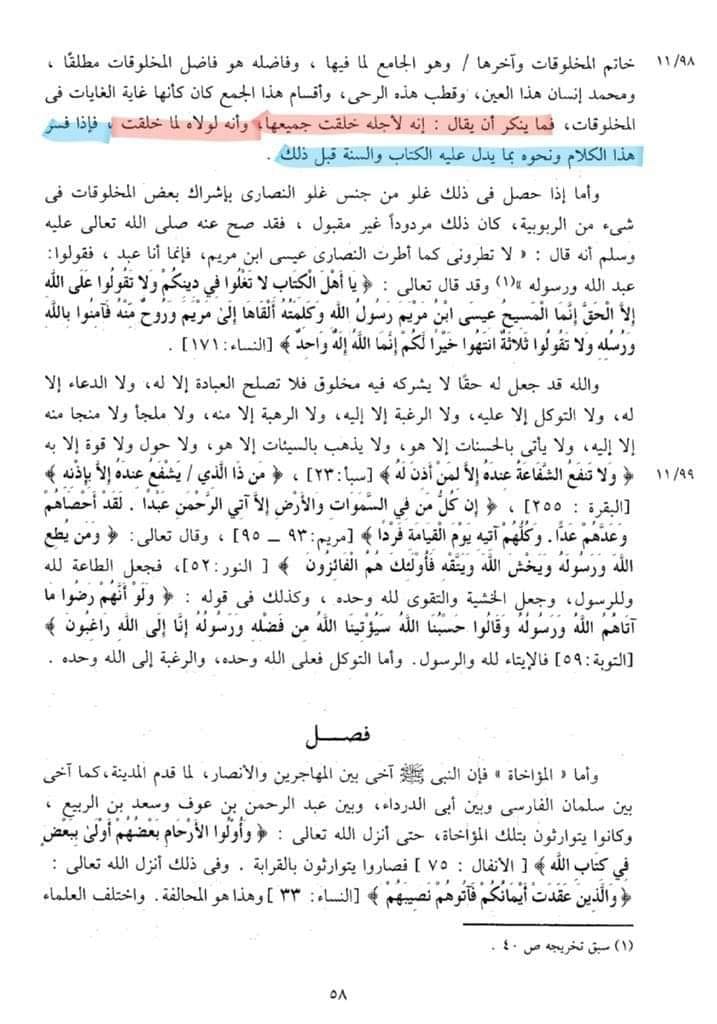 ١١/٩٨ خاتم المخلوقات وآخرها / وهو الجامع لما فيها ، وفاضله هو فاضل المخلوقات مطلقًا ،
ومحمد إنسان هذا العين، وقطب هذه الرحى، وأقسام هذا الجمع كان كأنها غاية الغايات فى
المخلوقات، فما ينكر أن يقال : إنه لأجله خلقت جميعها، وأنه لولاه لما خلقت ، فإذا فسر
هذا الكلام ونحوه بما يدل عليه الكتاب والسنة قبل ذلك .
وأما إذا حصل فى ذلك غلو من جنس غلو النصارى بإشراك بعض المخلوقات فى
شىء من الربوبية، كان ذلك مردوداً غير مقبول ، فقد صح عنه صلى الله تعالى عليه
وسلم أنه قال : « لا تطرونى كما أطرت النصارى عيسى ابن مريم، فإنما أنا عبد ، فقولوا:
عبد الله ورسوله »(١) وقد قال تعالى : ﴿ يَا أَهْلَ الْكِتَابِ لا تَغْلُوا فِي دِينِكُمْ وَلا تَقُولُوا عَلَى اللَّهِ
إِلاَّ الْحَقَّ إِنَّمَا الْمَسِيحُ عِيسَى ابْنُ مَرْيَمَ رَسُولُ اللَّهِ وَكَلِمَتُهُ أَلْقَاهَا إِلَىٰ مَرْيَمَ وَرُوحٌ مِّنْهُ فَآمِنُوا بِاللَّهِ
وَرُسُلِهِ وَلا تَقُولُوا ثَلاثَةٌ انتَهُوا خَيْرًا لَّكُمْ إِنَّمَا اللَّهُ إِلَهٌ وَاحِدٌ ﴾ [النساء: ١٧١] .
والله قد جعل له حقًا لا يشركه فيه مخلوق فلا تصلح العبادة إلا له، ولا الدعاء إلا
له، ولا التوكل إلا عليه، ولا الرغبة إلا إليه، ولا الرهبة إلا منه، ولا ملجأ ولا منجا منه
إلا إليه، ولا يأتى بالحسنات إلا هو، ولا يذهب بالسيئات إلا هو، ولا حول ولا قوة إلا به
١١/٩٩ ﴿ وَلا تَنفَعُ الشَّفَاعَةُ عِندَهُ إِلاَّ لِمَنْ أَذِنَ لَهُ ﴾ [سبأ: ٢٣] ، ﴿ مَن ذَا الَّذِي / يَشْفَعُ عِندَهُ إِلاَّ بِإِذْنِهِ ﴾
[البقرة : ٢٥٥] ، ﴿ إِن كُلُّ مَن فِي السَّمَوَاتِ وَالأَرْضِ إِلاَّ آتِي الرَّحْمَنِ عَبْدًا . لَقَدْ أَحْصَاهُمْ
وَعَدَّهُمْ عَدًّا . وَكُلُّهُمْ آتِيهِ يَوْمَ الْقِيَامَةِ فَرْدًا ﴾ [مريم: ٩٣ ــ ٩٥] ، وقال تعالى: ﴿ وَمَن يُطِعِ
اللَّهَ وَرَسُولَهُ وَيَخْشَ اللَّهَ وَيَتَّقْهِ فَأُولَئِكَ هُمُ الْفَائِزُونَ ﴾ [ النور: ٥٢]، فجعل الطاعة لله
وللرسول، وجعل الخشية والتقوى لله وحده ، وكذلك فى قوله : ﴿ وَلَوْ أَنَّهُمْ رَضُوا مَا
آتَاهُمُ اللَّهُ وَرَسُولُهُ وَقَالُوا حَسْبُنَا اللَّهُ سَيُؤْتِينَا اللَّهُ مِن فَضْلِهِ وَرَسُولُهُ إِنَّا إِلَى اللَّهِ رَاغِبُونَ ﴾
[التوبة: ٥٩] فالإيتاء لله والرسول. وأما التوكل فعلى الله وحده، والرغبة إلى الله وحده .
فصــل
وأما « المؤاخاة » فإن النبى ﷺ آخى بين المهاجرين والأنصار، لما قدم المدينة، كما آخى
بين سلمان الفارسى وبين أبى الدرداء، وبين عبد الرحمن بن عوف وسعد بن الربيع ،
وكانوا يتوارثون بتلك المؤاخاة، حتى أنزل الله تعالى : ﴿ وَأُوْلُوا الأَرْحَامِ بَعْضُهُمْ أَوْلَىٰ بِبَعْضٍ
فِي كِتَابِ اللَّهِ ﴾ [ الأنفال : ٧٥ ] فصاروا يتوارثون بالقرابة . وفى ذلك أنزل الله تعالى :
﴿ وَالَّذِينَ عَقَدَتْ أَيْمَانُكُمْ فَآتُوهُمْ نَصِيبَهُمْ ﴾ [النساء: ٣٣ ] وهذا هو المحالفة . واختلف العلماء
(١) سبق تخريجه ص ٤٠ .
٥٨